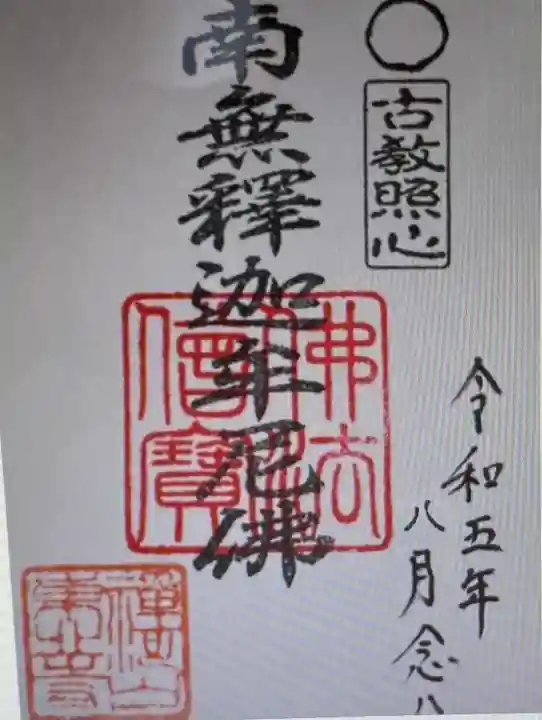 古教照心
南無釋迦牟尼佛
令和五年
八月念八
佛法僧寶